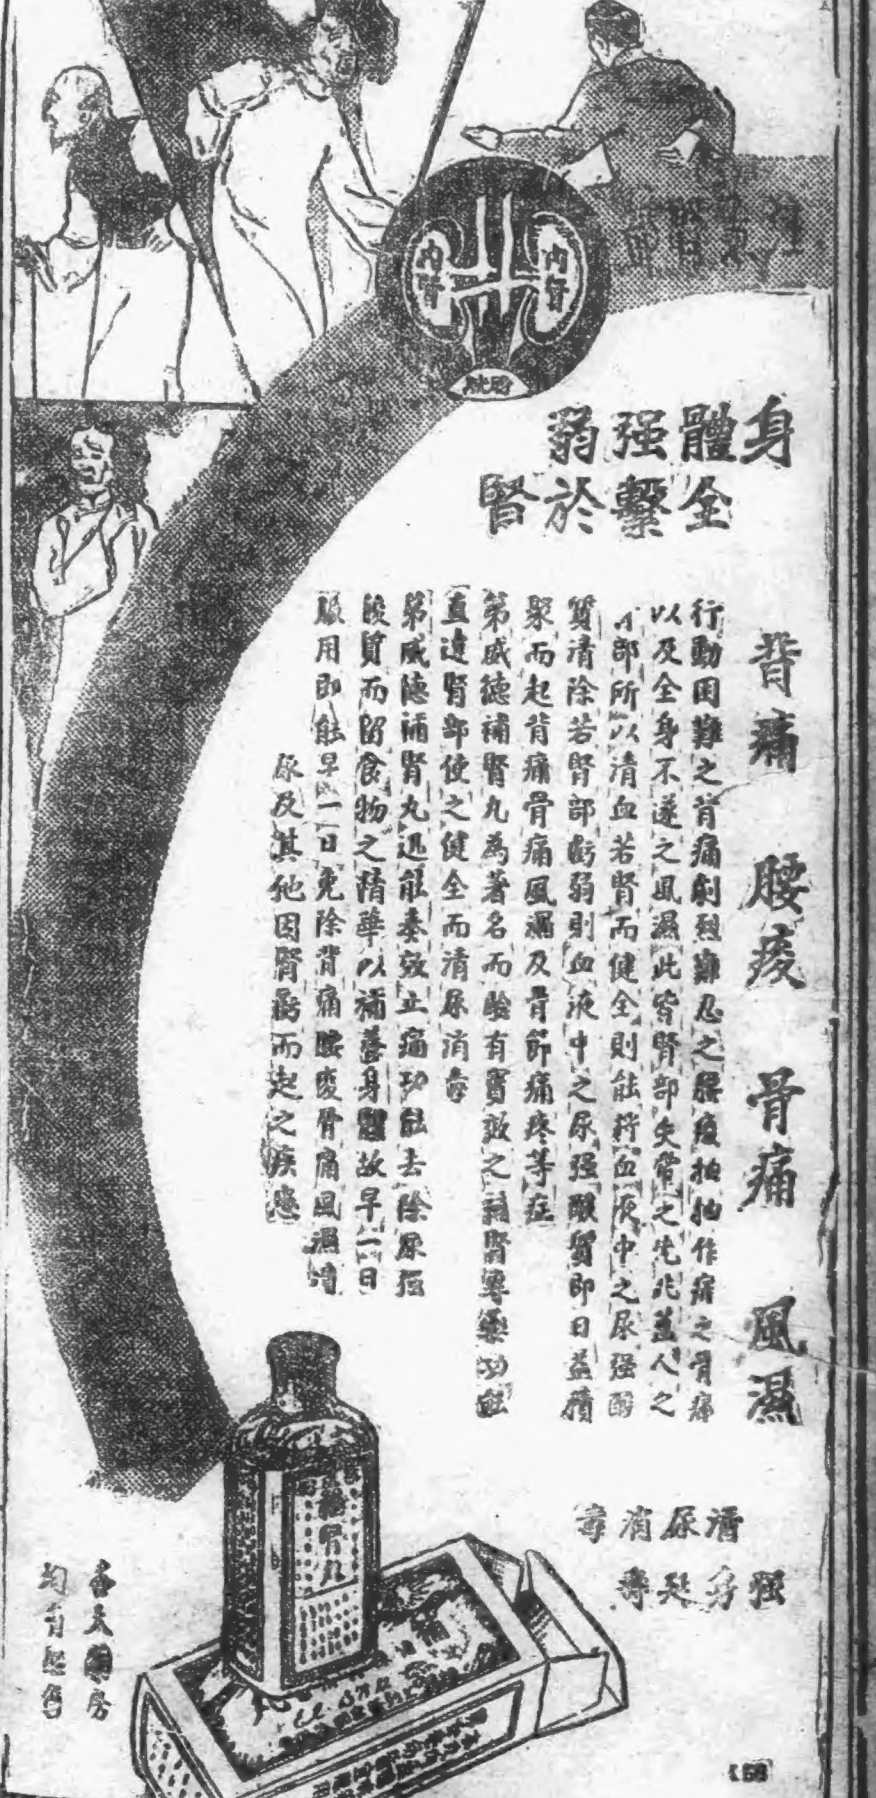 注意腎部
內腎
內腎
膀胱
身體强弱
全繫於腎
背痛 腰痠 骨痛 風濕
行動困難之背痛劇烈難忍之腰痠抽抽作痛之骨痛
以及全身不遂之風濕此皆腎部失常之先兆蓋人之
部所以清血若腎而健全則能將血液中之尿强酸
質清除若腎部虧弱則血液中之尿强酸質即日益積
聚而起背痛骨痛風濕及骨節痛疼等症
第威德補腎丸為著名而驗有實效之補腎專藥功能
直達腎部使之健全而清尿消毒
第威德補腎丸迅能奏效立痛功能去除尿强
酸質而留食物之精華以補養身體故早一日
服用即能早一日免除背痛腰痠骨痛風濕
尿及其他因腎虧而起之疾患
清尿消毒
强身延壽
補腎丸
各大藥房
均有經售